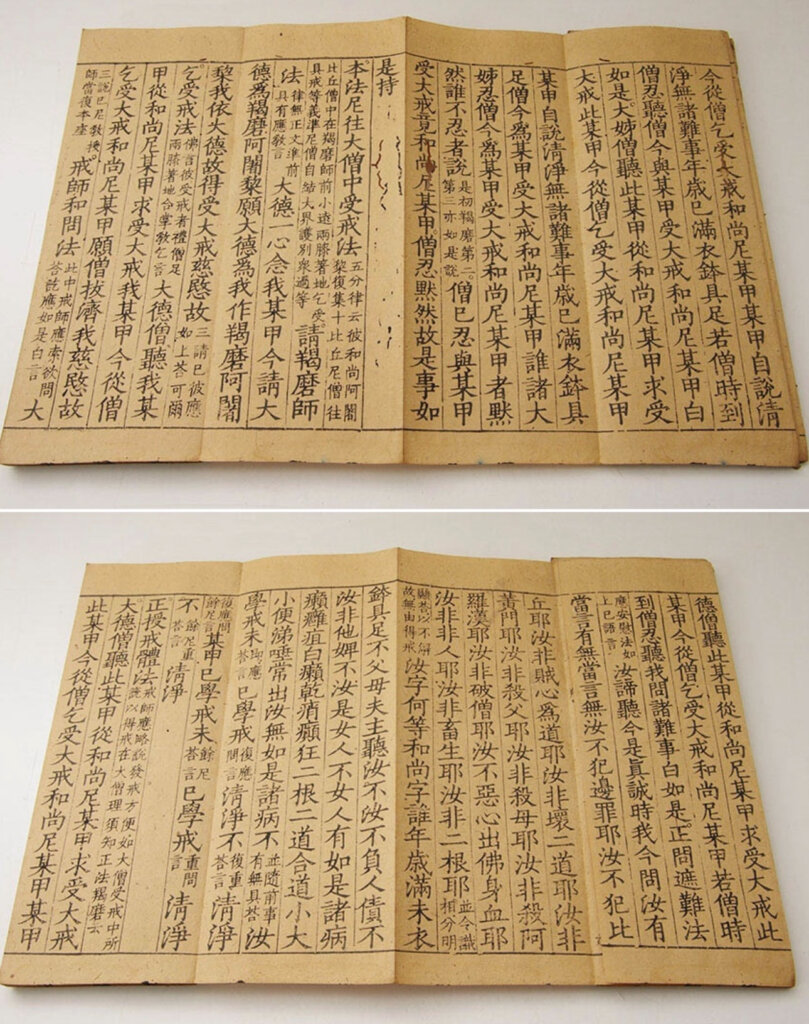 今從僧乞受大戒和尚尼某甲某甲自說清
淨無諸難事年歲已滿衣鉢具足若僧時到
僧忍聽僧今與某甲受大戒和尚尼某甲白
如是大姊僧聽此某甲從和尚尼某甲求受
大戒此某甲今從僧乞受大戒和尚尼某甲
某甲自說清淨無諸難事年歲已滿衣鉢具
足僧今爲某甲受大戒和尚尼某甲誰諸大
姊忍僧今爲某甲受大戒和尚尼某甲者默
然誰不忍者說是初羯磨第二。第三亦如是說。僧已忍與某甲
受大戒竟和尚尼某甲僧忍默然故是事如
是持
本法尼往大僧中受戒法五分律云彼和尚阿闍黎復集十比丘尼僧往
比丘僧中在羯磨師前小遠兩膝著地乞受。具戒等義準尼僧自結大界護別衆過等請羯磨師
法律無正文準前具有應敎言大德一心念我某甲今請大
德爲羯磨阿闍黎願大德爲我作羯磨阿闍
黎我依大德故得受大戒慈愍故三請已彼應如上荅可爾
乞受戒法佛言彼受戒者禮僧足兩膝著地合掌敎乞言大德僧聽我某
甲從和尚尼某甲求受大戒我某甲今從僧
乞受大戒和尚尼某甲願僧拔濟我慈愍故
三說已尼敎授師當復本座戒師和問法此中戒師應索欲問荅訖應如是白言大
德僧聽此某甲從和尚尼某甲求受大戒此
某甲今從僧乞受大戒和尚尼某甲若僧時
到僧忍聽我問諸難事白如是正問遮難法
應安慰法如上已語言汝諦聽今是眞誠時我今問汝有
當言有無當言無汝不犯邊罪耶汝不犯比
丘耶汝非賊心爲道耶汝非壞二道耶汝非
黃門耶汝非殺父耶汝非殺母耶汝非殺阿
羅漢耶汝非破僧耶汝不惡心出佛身血耶
汝非非人耶汝非畜生耶汝非二根耶並令識相分明
顯荅以不解故無由得戒汝字何等和尚字誰年歲滿未衣
鉢具足不父母夫主聽汝不汝不負人債不
汝非他婢不汝是女人不女人有如是諸病
癩癰疽白癩乾痟癲狂二根二道合道小大
小便涕唾常出汝無如是諸病不並隨前事有無具荅汝
學戒未卽應荅言已學戒復應問言清淨不復重荅言清淨
復應問餘尼言某甲已學戒未餘尼荅言已學戒重問言清淨
不餘尼重荅言清淨
正授戒體法戒師應略說發戒方便如大僧受戒中所以得戒在大僧理須知正法羯磨云
大德僧聽此某甲從和尚尼某甲求受大戒
此某甲今從僧乞受大戒和尚尼某甲某甲